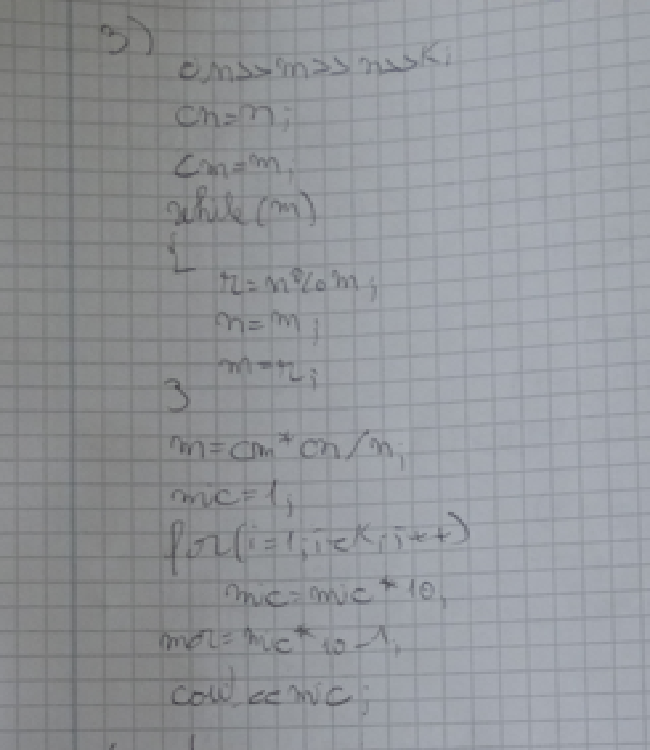 3)
cin>>m>>n>>k;
cn=n;
cm=m;
while(m)
{
r=n%m;
n=m;
m=r;
}
m=cm*cn/n;
mic=1;
for(i=1;i<k;i++)
mic=mic*10;
mar=mic*10-1;
cout<<mic;